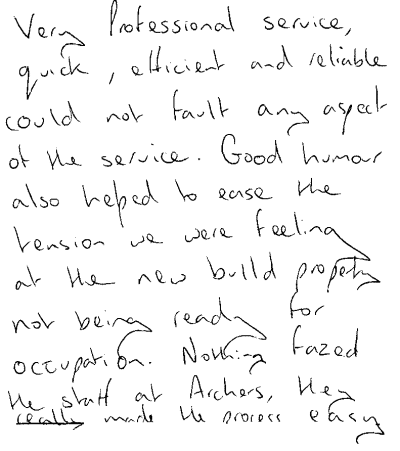 Very Professional service,
quick, efficient and reliable
could not fault any aspect
of the service. Good humour
also helped to ease the
tension we were feeling
at the new build property
not being ready for
occupation. Nothing fazed
the staff at Archers, they
really made the process easy